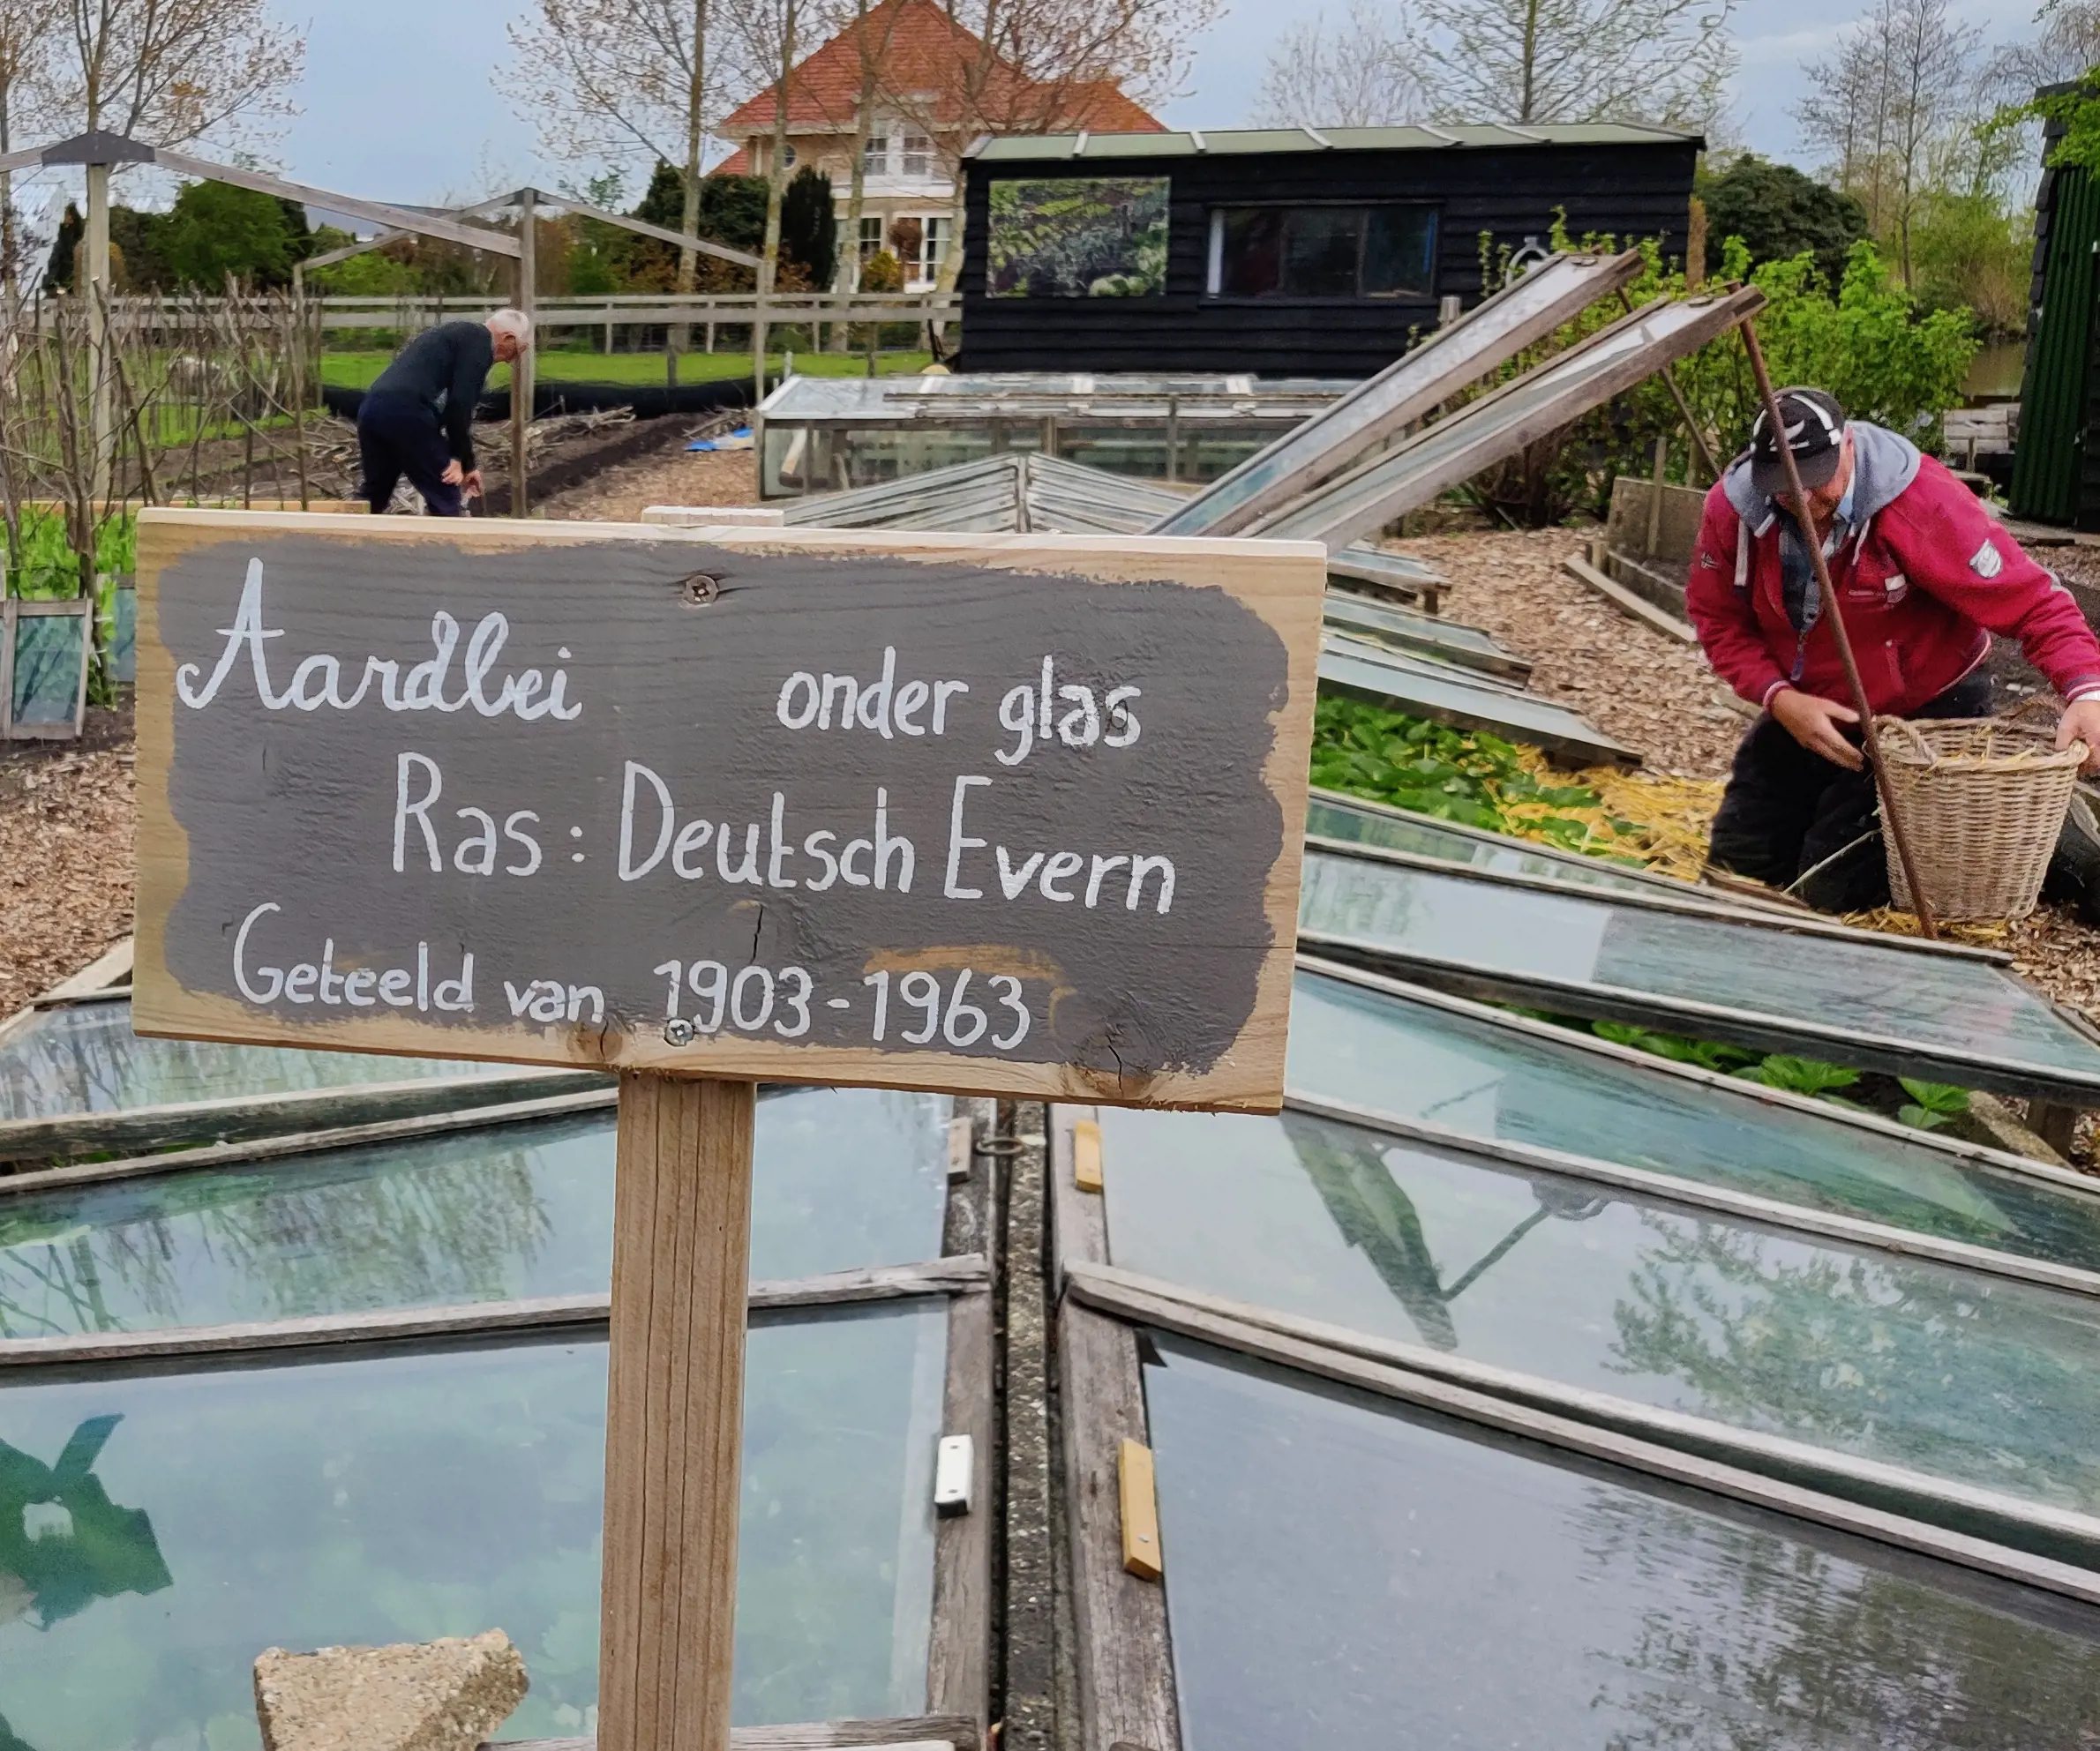 Aardbei onder glas
Ras: Deutsch Evern
Geteeld van 1903-1963